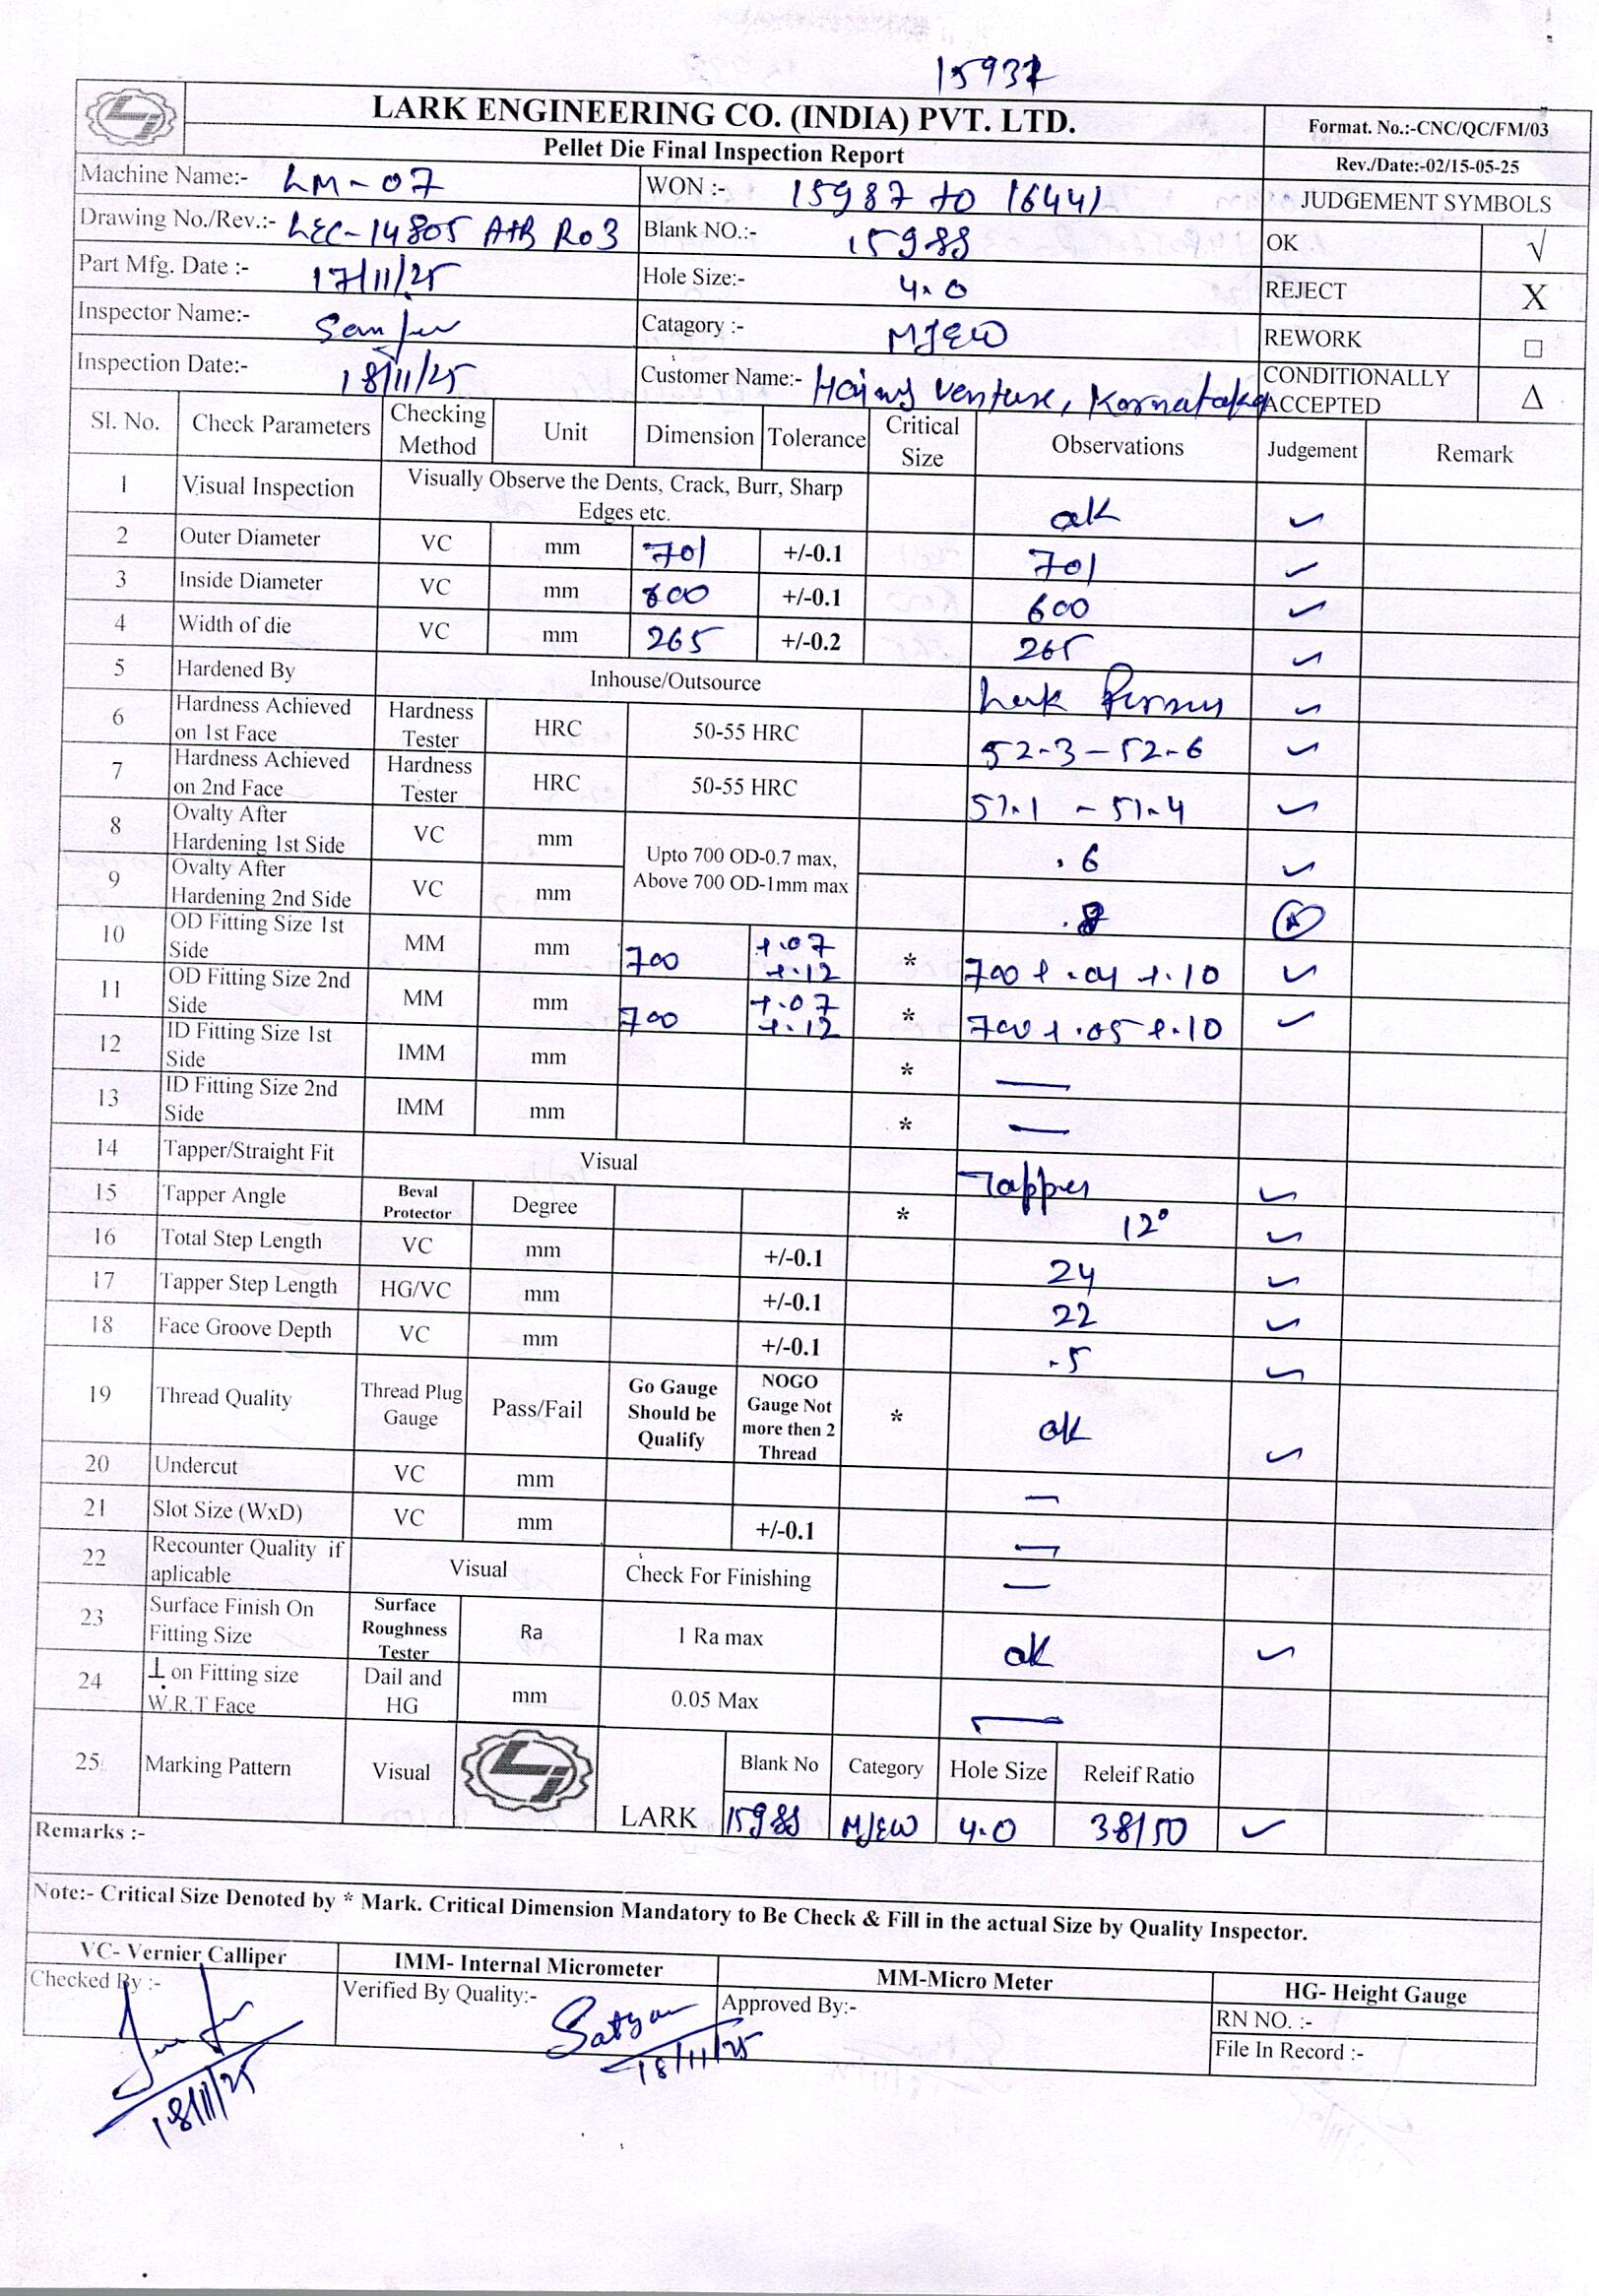 15937
LARK ENGINEERING CO. (INDIA) PVT. LTD.
Format. No.:-CNC/QC/FM/03
Pellet Die Final Inspection Report
Rev./Date:-02/15-05-25
Machine Name:- LM-07 WON :- 15987 to 16441 JUDGEMENT SYMBOLS
Drawing No./Rev.:- LEC-14805 A+B R03 Blank NO.:- 15988 OK √
Part Mfg. Date :- 17/11/25 Hole Size:- 4.0 REJECT X
Inspector Name:- Catagory :- MJEW REWORK □
Inspection Date:- 18/11/25 Customer Name:- venture, Karnataka CONDITIONALLY ACCEPTED Δ
Sl. No. Check Parameters Checking Method Unit Dimension Tolerance Critical Size Observations Judgement Remark
1 Visual Inspection Visually Observe the Dents, Crack, Burr, Sharp Edges etc. ok ✓
2 Outer Diameter VC mm 701 +/-0.1 701 ✓
3 Inside Diameter VC mm 600 +/-0.1 600 ✓
4 Width of die VC mm 265 +/-0.2 265 ✓
5 Hardened By Inhouse/Outsource Lark ✓
6 Hardness Achieved on 1st Face Hardness Tester HRC 50-55 HRC 52.3 - 52.6 ✓
7 Hardness Achieved on 2nd Face Hardness Tester HRC 50-55 HRC 51.1 - 51.4 ✓
8 Ovalty After Hardening 1st Side VC mm Upto 700 OD-0.7 max, Above 700 OD-1mm max .6 ✓
9 Ovalty After Hardening 2nd Side VC mm
10 OD Fitting Size 1st Side MM mm 700 +.07 +.12 * 700 +.04 +.10 ✓
11 OD Fitting Size 2nd Side MM mm 700 +.07 +.12 * 700 +.05 +.10 ✓
12 ID Fitting Size 1st Side IMM mm * —
13 ID Fitting Size 2nd Side IMM mm * —
14 Tapper/Straight Fit Visual Tapper ✓
15 Tapper Angle Beval Protector Degree * 12° ✓
16 Total Step Length VC mm +/-0.1 24 ✓
17 Tapper Step Length HG/VC mm +/-0.1 22 ✓
18 Face Groove Depth VC mm +/-0.1 .5 ✓
19 Thread Quality Thread Plug Gauge Pass/Fail Go Gauge Should be Qualify NOGO Gauge Not more then 2 Thread * ok ✓
20 Undercut VC mm —
21 Slot Size (WxD) VC mm +/-0.1 —
22 Recounter Quality if aplicable Visual Check For Finishing —
23 Surface Finish On Fitting Size Surface Roughness Tester Ra 1 Ra max ok ✓
24 ⊥ on Fitting size W.R.T Face Dail and HG mm 0.05 Max —
25 Marking Pattern Visual LARK Blank No Category Hole Size Releif Ratio
15988 MJEW 4.0 38/50 ✓
Remarks :-
Note:- Critical Size Denoted by * Mark. Critical Dimension Mandatory to Be Check & Fill in the actual Size by Quality Inspector.
VC- Vernier Calliper IMM- Internal Micrometer MM-Micro Meter HG- Height Gauge
Checked By :- Verified By Quality:- Satyam Approved By:- RN NO. :-
18/11/25 18/11/25 File In Record :-